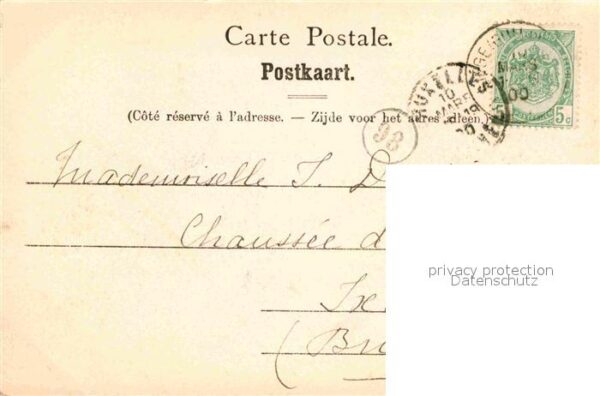 Carte Postale.
Postkaart.
(Côté réservé à l'adresse. — Zijde voor het adres alleen.)
98
BRUXELLES
10
MARS
5c
Mademoiselle J. D
Chaussée d
Ixe
(Bru
privacy protection
Datenschutz